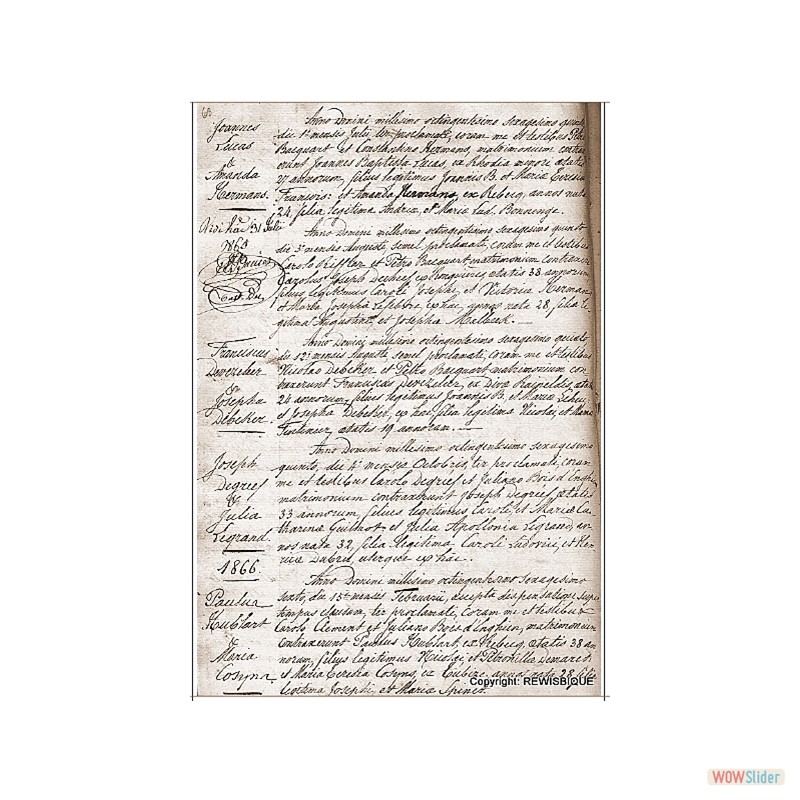 Joannes
Lucas
&
Amanda
Hermans.
Anno Domini millesimo octingentesimo sexagesimo quinto
die 1a mensis Julii, ter proclamati, coram me et testibus Petro
Bacquart et Constantino Hermans, matrimonium contrax-
erunt Joannes Baptista Lucas, ex Rhodia minore aetatis
27 annorum, filius legitimus Joannis B. et Maria Theresia
François: et Amanda Hermans, ex Rebecq, annos nata
24, filia legitima Andreae, et Maria Lud. Bonnenge.
31 Julii
1865
Anno Domini millesimo octingentesimo sexagesimo quinto
die 3a mensis Augusti semel proclamati, coram me et testibus
Carolo Piffler et Petro Bacquart matrimonium contraxer
Carolus Joseph aetatis 33 annorum
filius legitimus Caroli Josephi, et Victoria Hermans,
et Maria Josepha Lefebvre ex hac, annos nata 28, filia le-
gitima Augustini, et Josepha
Franciscus
Devezeleer
&
Josepha
Debeker.
Anno Domini millesimo octingentesimo sexagesimo quinto
die 12a mensis Augusti semel proclamati, coram me et testibus
Nicolao Debeker et Petro Bacquart matrimonium con-
traxerunt Franciscus Devezeleer, ex Diva Raineldis, aetatis
24 annorum, filius legitimus Joannis B. et Maria
et Josepha Debeker, ex hac filia legitima Nicolai, et Maria
aetatis 19 annorum.
Joseph
Degreef
&
Julia
Legrand.
Anno Domini millesimo octingentesimo sexagesimo
quinto, die 4a mensis Octobris, ter proclamati, coram
me et testibus Carolo Degreef et Juliano Bois d'Enghien,
matrimonium contraxerunt Joseph Degreef aetatis
33 annorum, filius legitimus Caroli, et Maria Ca-
tharina et Julia Apolonia Legrand, an-
nos nata 32, filia legitima Caroli Ludovici, et Hen-
rica Dubru, uterque ex hac.
1866.
Paulus
Hublart
&
Maria
Cosyns.
Anno Domini millesimo octingentesimo sexagesimo
sexto, die 13a mensis Februarii, excepta dispensatione super
tempus clausum, ter proclamati, coram me et testibus
Carolo Clement et Juliano Bois d'Enghien, matrimonium
contraxerunt Paulus Hublart, ex Rebecq, aetatis 38 an-
norum, filius legitimus Nicolai et Petronilla Demaret
et Maria Theresia Cosyns, ex Tubize, annos nata 28, filia
legitima Josephi, et Maria Spinet.
Copyright: REWISBIQUE
WOWSlider